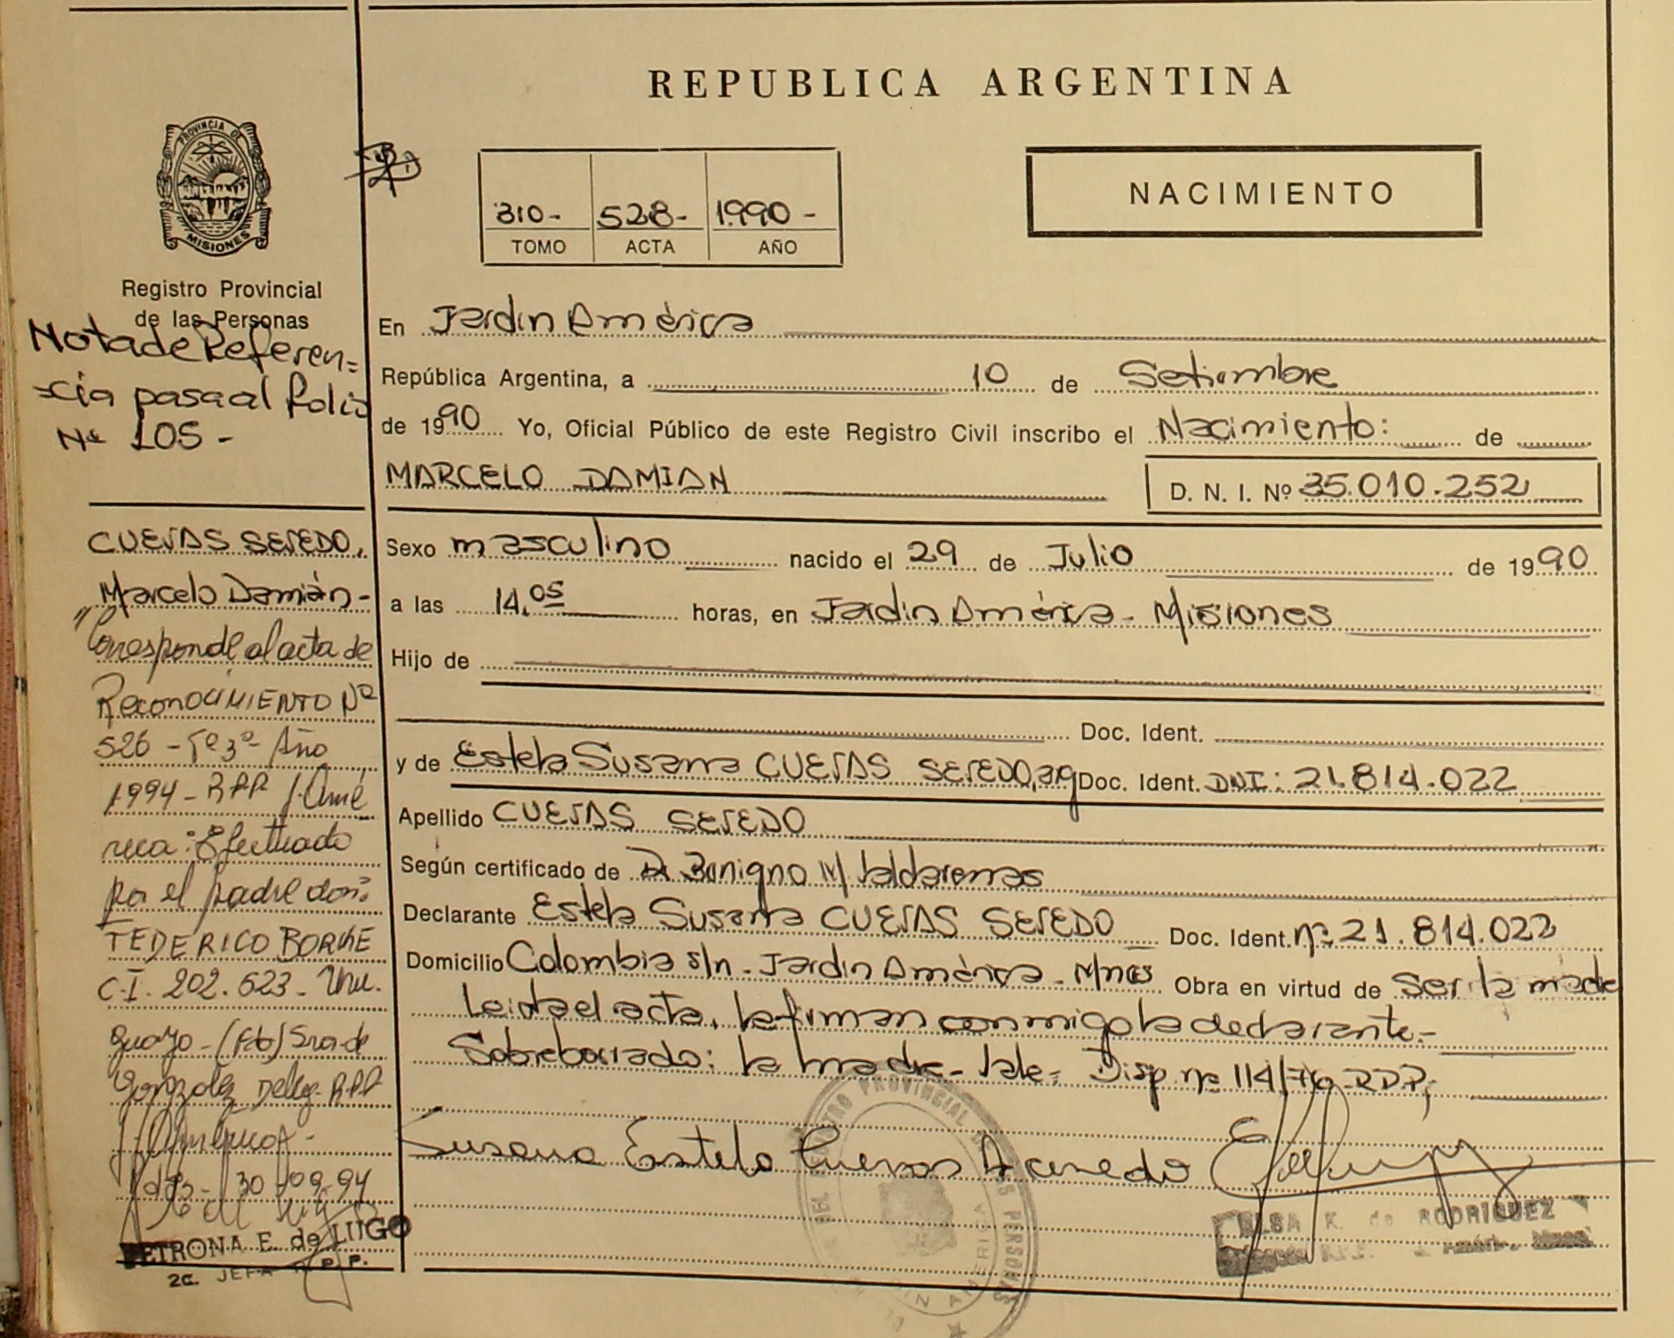 REPUBLICA ARGENTINA
PROVINCIA DE
MISIONES
310- 528- 1990-
TOMO ACTA AÑO
NACIMIENTO
Registro Provincial
de las Personas
Nota de Referen=
=cia pasa al folio
Nº 105 -
CUEVAS SEVEDO,
Marcelo Damián-
"Corresponde al acta de
Reconocimiento Nº
526 - Tº 3º- Año
1994 - RPP J. Amé
rica: Efectuado
por el padre don:
FEDERICO BORKE
C.I. 202.623 - Uru.
guayo - (Fdo) Sra de
Gonzalez Deleg. RPP
J. América -
Pdas - 30-09-94
PETRONA E. de LUGO
2a. JEFA R. P. P.
En Jardin América
República Argentina, a 10 de Setiembre
de 1990 Yo, Oficial Público de este Registro Civil inscribo el Nacimiento: de
MARCELO DAMIAN
D. N. I. Nº 35.010.252
Sexo masculino nacido el 29 de Julio de 1990
a las 14,05 horas, en Jardin América - Misiones
Hijo de
Doc. Ident.
y de Estela Susana CUEVAS SEVEDO, arg Doc. Ident. DNI: 21.814.022
Apellido CUEVAS SEVEDO
Según certificado de Dr Benigno M Valdarenas
Declarante Estela Susana CUEVAS SEVEDO Doc. Ident. nº 21.814.022
Domicilio Colombia s/n - Jardin América - Mnes Obra en virtud de ser la madre
Leida el acta, la firman conmigo la declarante.-
Sobreborrado: la madre - Vale - Disp nº 114/76 RDP,
Susana Estela Cuevas Acevedo
REGISTRO PROVINCIAL DE LAS PERSONAS
JARDIN AMERICA
ELSA K. de RODRIGUEZ